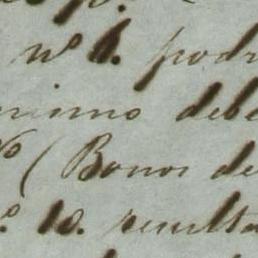 nº 1. podr
nismo debe
( Bonos de
10. resulta